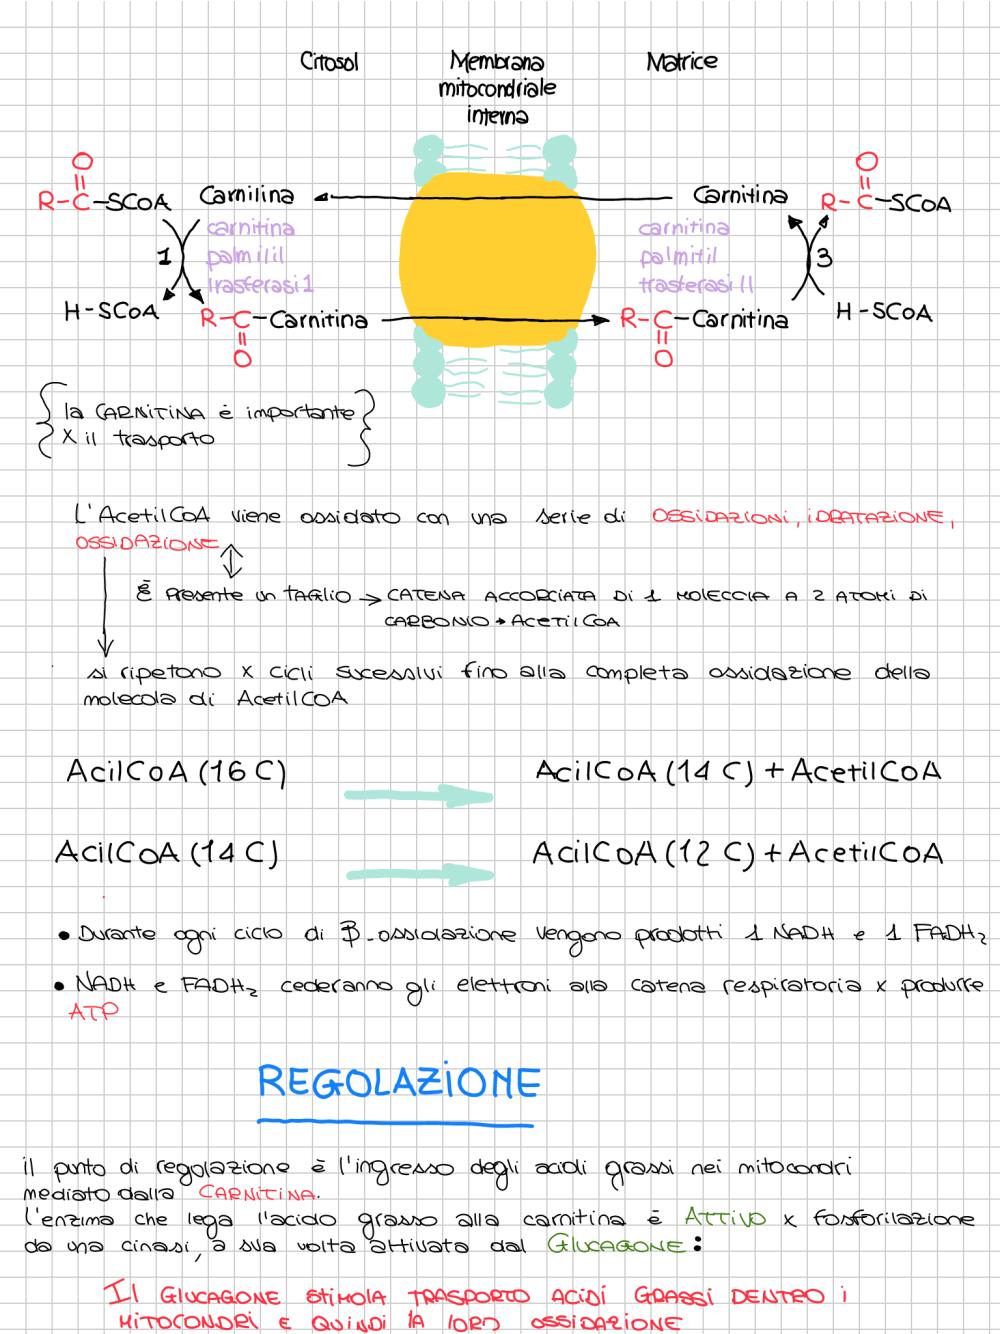 Citosol
Membrana
mitocondriale
interna
Matrice
O
R-C-SCoA
Carnilina
carnitina
palmilil
trasferasi 1
1
H-SCoA
R-C-Carnitina
O
Carnitina
O
R-C-SCoA
carnitina
palmitil
trasterasi II
3
R-C-Carnitina
O
H-SCoA
la CARNITINA è importante
x il trasporto
L'AcetilCoA viene ossidato con una serie di OSSIDAZIONI, IDRATAZIONE,
OSSIDAZIONE
È PRESENTE UN TAGLIO → CATENA ACCORCIATA DI 1 MOLECCIA A 2 ATOMI DI
CARBONIO → ACETILCOA
si ripetono x cicli sucessivi fino alla completa ossidazione della
molecola di AcetilCOA
AcilCoA (16 C) → AcilCoA (14 C) + AcetilCoA
AcilCoA (14 C) → AcilCoA (12 C) + AcetilCoA
• Durante ogni ciclo di β-ossidazione vengono prodotti 1 NADH e 1 FADH₂
• NADH e FADH₂ cederanno gli elettroni alla catena respiratoria x produrre
ATP
REGOLAZIONE
il punto di regolazione è l'ingresso degli acidi grassi nei mitocondri
mediato dalla CARNITINA.
l'enzima che lega l'acido grasso alla carnitina è ATTIVO x fosforilazione
da una cinasi, a sua volta attivata dal GLUCAGONE:
IL GLUCAGONE STIMOLA TRASPORTO ACIDI GRASSI DENTRO i
MITOCONDRI E QUINDI LA LORO OSSIDAZIONE